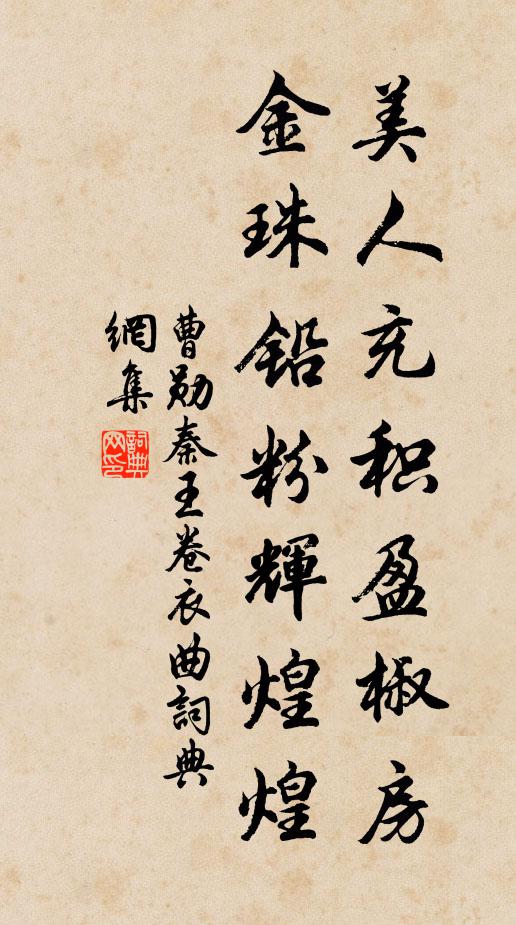 美人充积盈椒房
金珠铅粉輝煌煌
曹勛秦王卷衣曲詞典
網集
詞典网印